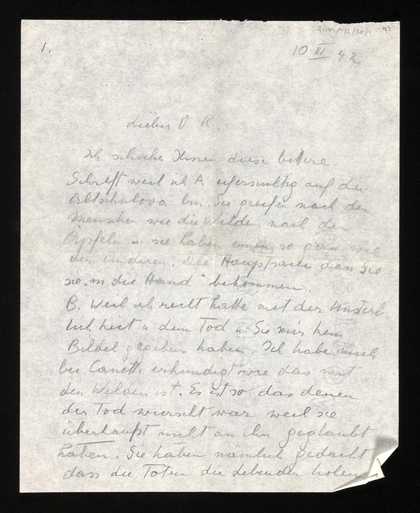 1.
10 III 42
Lieber D K.
Ich schicke Ihnen diese bittere
Schrift weil ich A eifersüchtig auf die
bin. Sie greifen nach den
Menschen wie die Wilden nach den
Äpfeln u. sie haben so gern wie
den anderen. Die Hauptsache dass Sie
sie in die Hand" bekommen.
B. Weil ich recht hatte mit der Unsterb
lichkeit u dem Tod u Sie mir kein
Bibel gegeben haben. Ich habe mich
bei Canetti erkundigt wie das mit
den Wilden ist. Es ist so das denen
der Tod war weil sie
überhaupt nicht an ihn geglaubt
hatten. Sie haben nämlich gedacht
dass die Toten die Lebenden holen